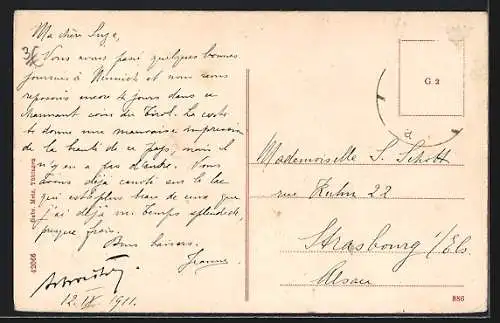 Ma chère Suze,
Nous avons passé quelques bonnes
journées à Munich et nous nous
reposons encore jours dans ce
charmant coin du Tirol. La carte
te donne une mauvaise impression
de la beauté de ce pays, mais il
n'y en a pas d'autre. Nous
avons déjà canoté sur le lac
qui est plus beau de ceux que
j'ai déjà vu. Temps splendide,
presque frais.
Bons baisers.
Jeanne
12.IX.1911.
Gebr. Metz, Tübingen
42066
G. 2
Mademoiselle S. Schott
rue Kuhn 22
Strasbourg i/Els.
Alsace
886